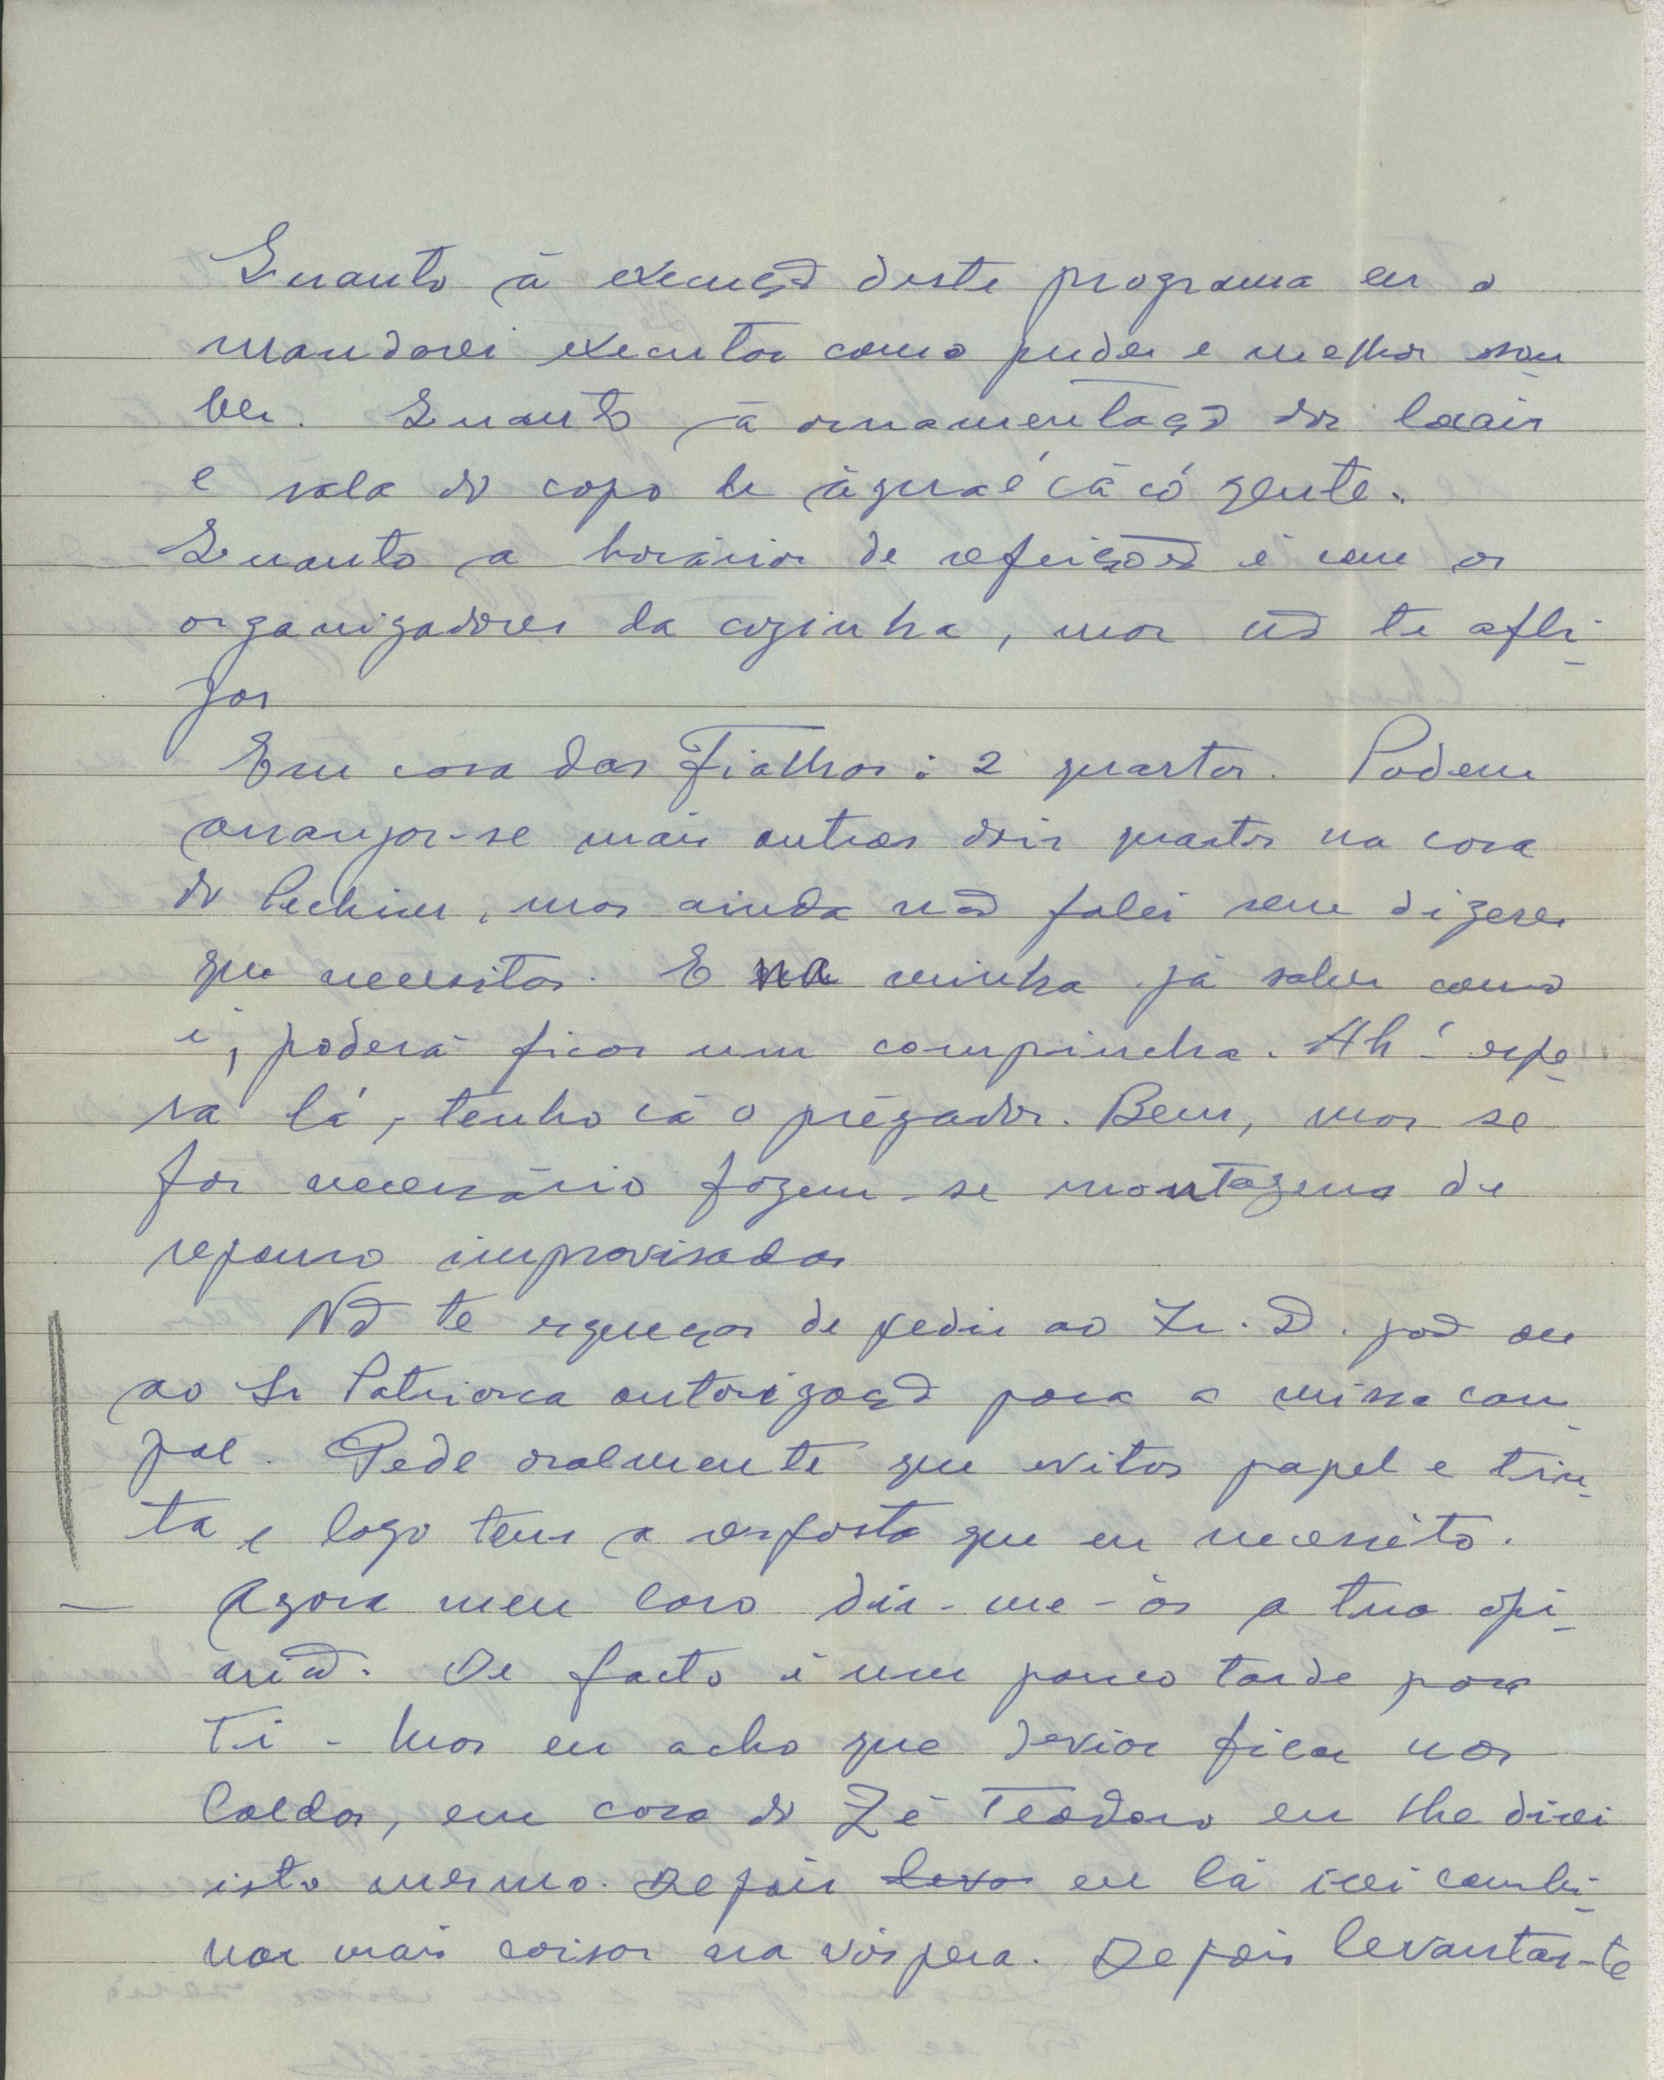 Quanto à execução deste programa eu o
mandarei executar como puder e melhor sou
ber. Quanto à ornamentação dos locais
e sala do copo de água é cá có gente.
Quanto a horários de refeições é com os
organizadores da cozinha, mas não te afli-
jas
Em casa das Fialhos: 2 quartos. Podem
arranjar-se mais outros dois quartos na casa
do Pechim, mas ainda não falei sem dizeres
que necessitas. E na minha já sabes como
é, poderá ficar um compincha. Ah! espe-
ra lá, tenho cá o prègador. Bem, mas se
for necessário fazem-se montagens de
repouso improvisadas
Não te esqueças de pedir ao Sr. D. João ou
ao Sr Patriarca autorização para a missa cam-
pal. Pede oralmente que evitas papel e tin-
ta e logo tens a resposta que eu necessito.
— Agora meu caro dir-me-ás a tua opi-
nião. De facto é um pouco tarde para
ti - Mas eu acho que devias ficar nas
Caldas, em casa do Zé Teodoro eu lhe direi
isto mesmo. Depois levas eu lá irei combi-
nar mais coisas na véspera. Depois levantas-te